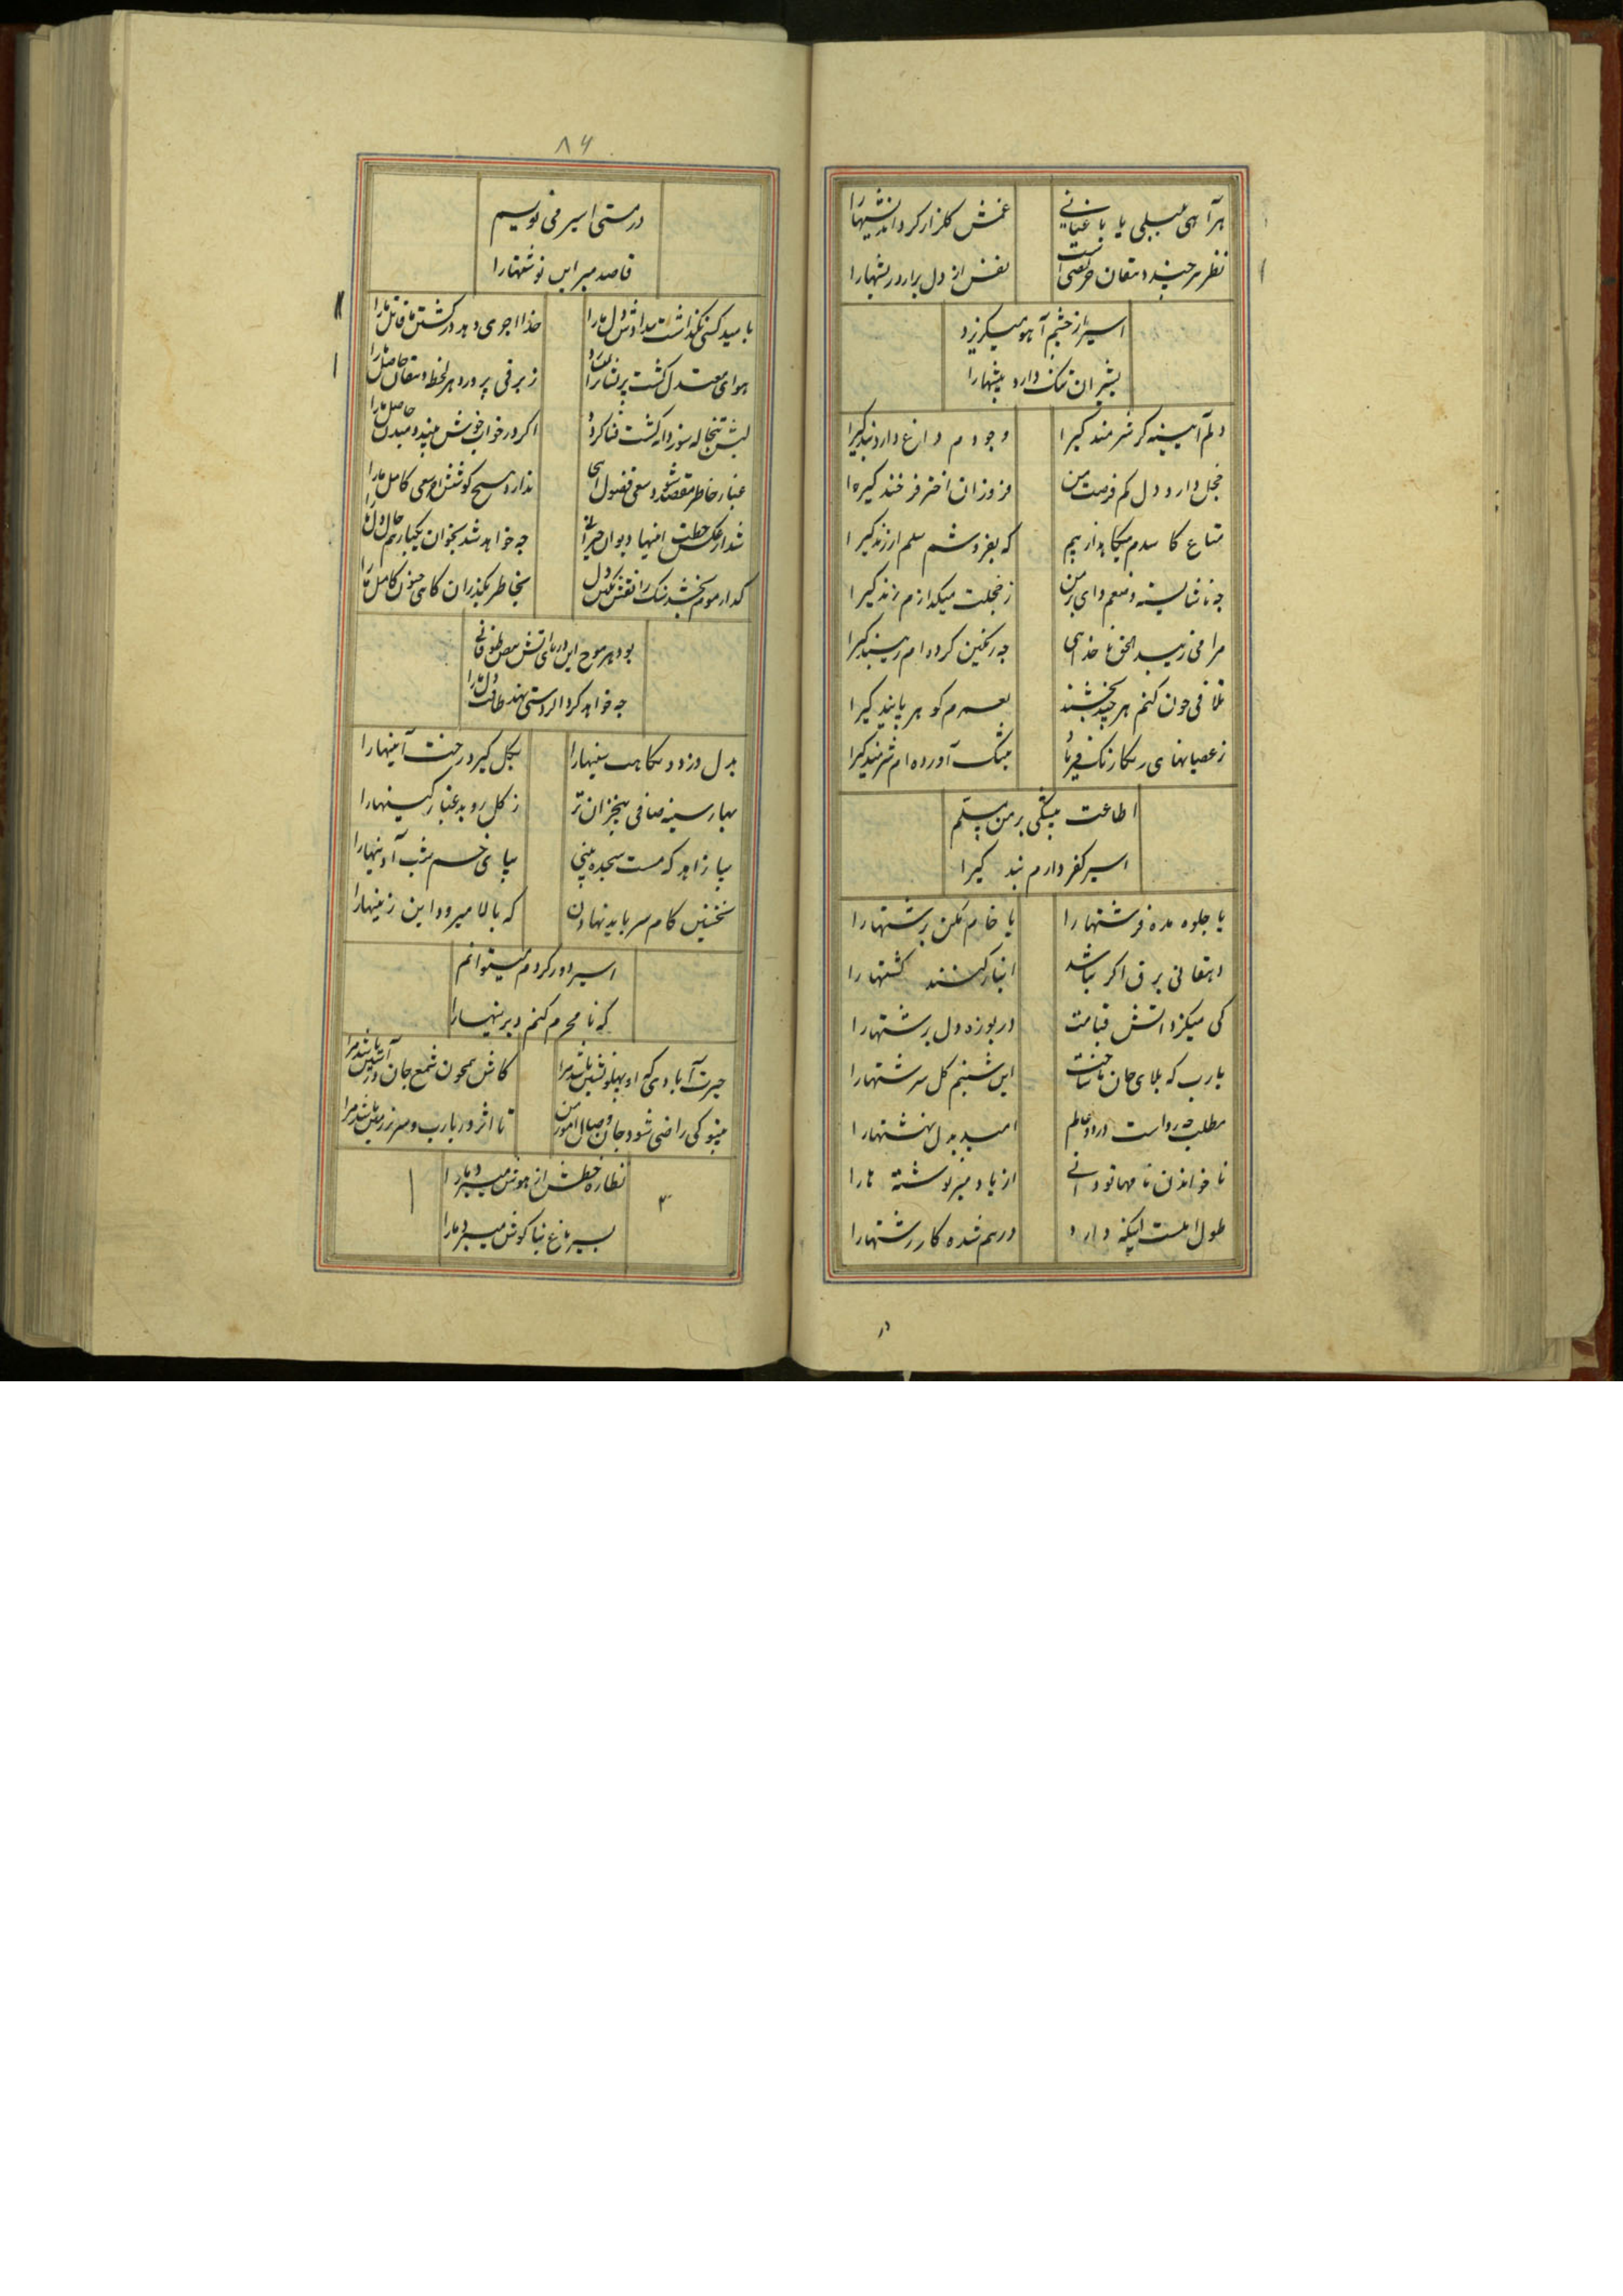 هر آهی بلبلی یا باغبانی
غمش گلزار کرد اندیشهارا
نظر هر چند دهقان حریصی است
نفس از دل برارد ریشهارا
اسیر از خشم آهو میگریزد
بشیران ننگ دارد بیشهارا
دلم آیینه گر شرمندگیرا
وجودم داغ دارد بندگیرا
خجل دارد دل کم فرصت من
فروزان اختر فرخندگیرا
متاع کاسدم بیکا بدارییم
که بفروشم سلم ارزندگیرا
چه ناشایسته و منعم وای بر من
ز خجلت میگدازم زندگیرا
مرا می زیبد الحق ناخدایی
چه رنگین کرده ام زیبندگیرا
تلافی چون کنم هر چند بخشند
بعمرم گو هر پایندگیرا
ز عصیانهای رنگارنگ فریاد
بتنگ آورده ام شرمندگیرا
اطاعت پیشگی بر من مسلم
اسیر کفر دارم بندگیرا
یا جلوه مده فرشتهارا
یا خام مکن برشتهارا
دهقانی برق اگر نباشد
انبار کنند کشتهارا
کی میگزد اتش قیامت
در یوزه دل برشتهارا
یارب که بلای جان ما ساخت
این شبنم گل سرشتهارا
مطلب چه رواست در دو عالم
امید بدل نهشتهارا
ناخواندن نامها تو دانی
از یاد مبر نوشته هارا
طول املست اینکه دارد
درهم شده کار رشتهارا
در
۸۶
در مستی اسیر می نویسم
قاصد مبر این نوشتهارا
بامید کسی نگذاشت بیداد تو دل مارا
خدا اجری دهد در کشتن ما قاتل مارا
هوای معتدل گشت پر
ز برقی پرورد هر لحظه دهقان حاصل مارا
لبش تبخاله سوز دانه کشت فنا گردد
اگر در خواب خوش بیند دمیدن حاصل مارا
غبار خاطر مقصد شود سعی فضول اینجا
ندارد هیچ کوشش از سعی کامل مارا
شد از عکس خطت اینها دیوان حیرانی
چه خواهد شد بخوان یکبار هم حال دل مارا
گداز موم بخشد سنگ را نقش نگین دل
بخاطر بگذران گاهی جنون کامل مارا
بود هر موج این دریای اتش طوفانی
چه خواهد کرد اگر دستی نهد طاقت دل مارا
بدل دزدد نگاهت سینهارا
بگل گیرد رخت آیینهارا
بهار سینه صافی بیخزان تر
ز گل روید غبار کینهارا
بیا زاهد که مست سجده بینی
بپای خم شب آدینهارا
نخستین گام سر باید نهادن
که بالا میرود این زینهارا
اسیر دور گردم میتوانم
که نا محرم کنم دیرینهارا
حیرت آبادی که او پهلو نشین باشد مرا
کاش همچون شمع جان در آستین باشد مرا
بیتو کی راضی شود جان وصال اموز من
تا اثر در یارب و سر زیر زمین باشد مرا
نظاره خطش از هوش میبرد مارا
بسیر باغ بناگوش میبرد مارا